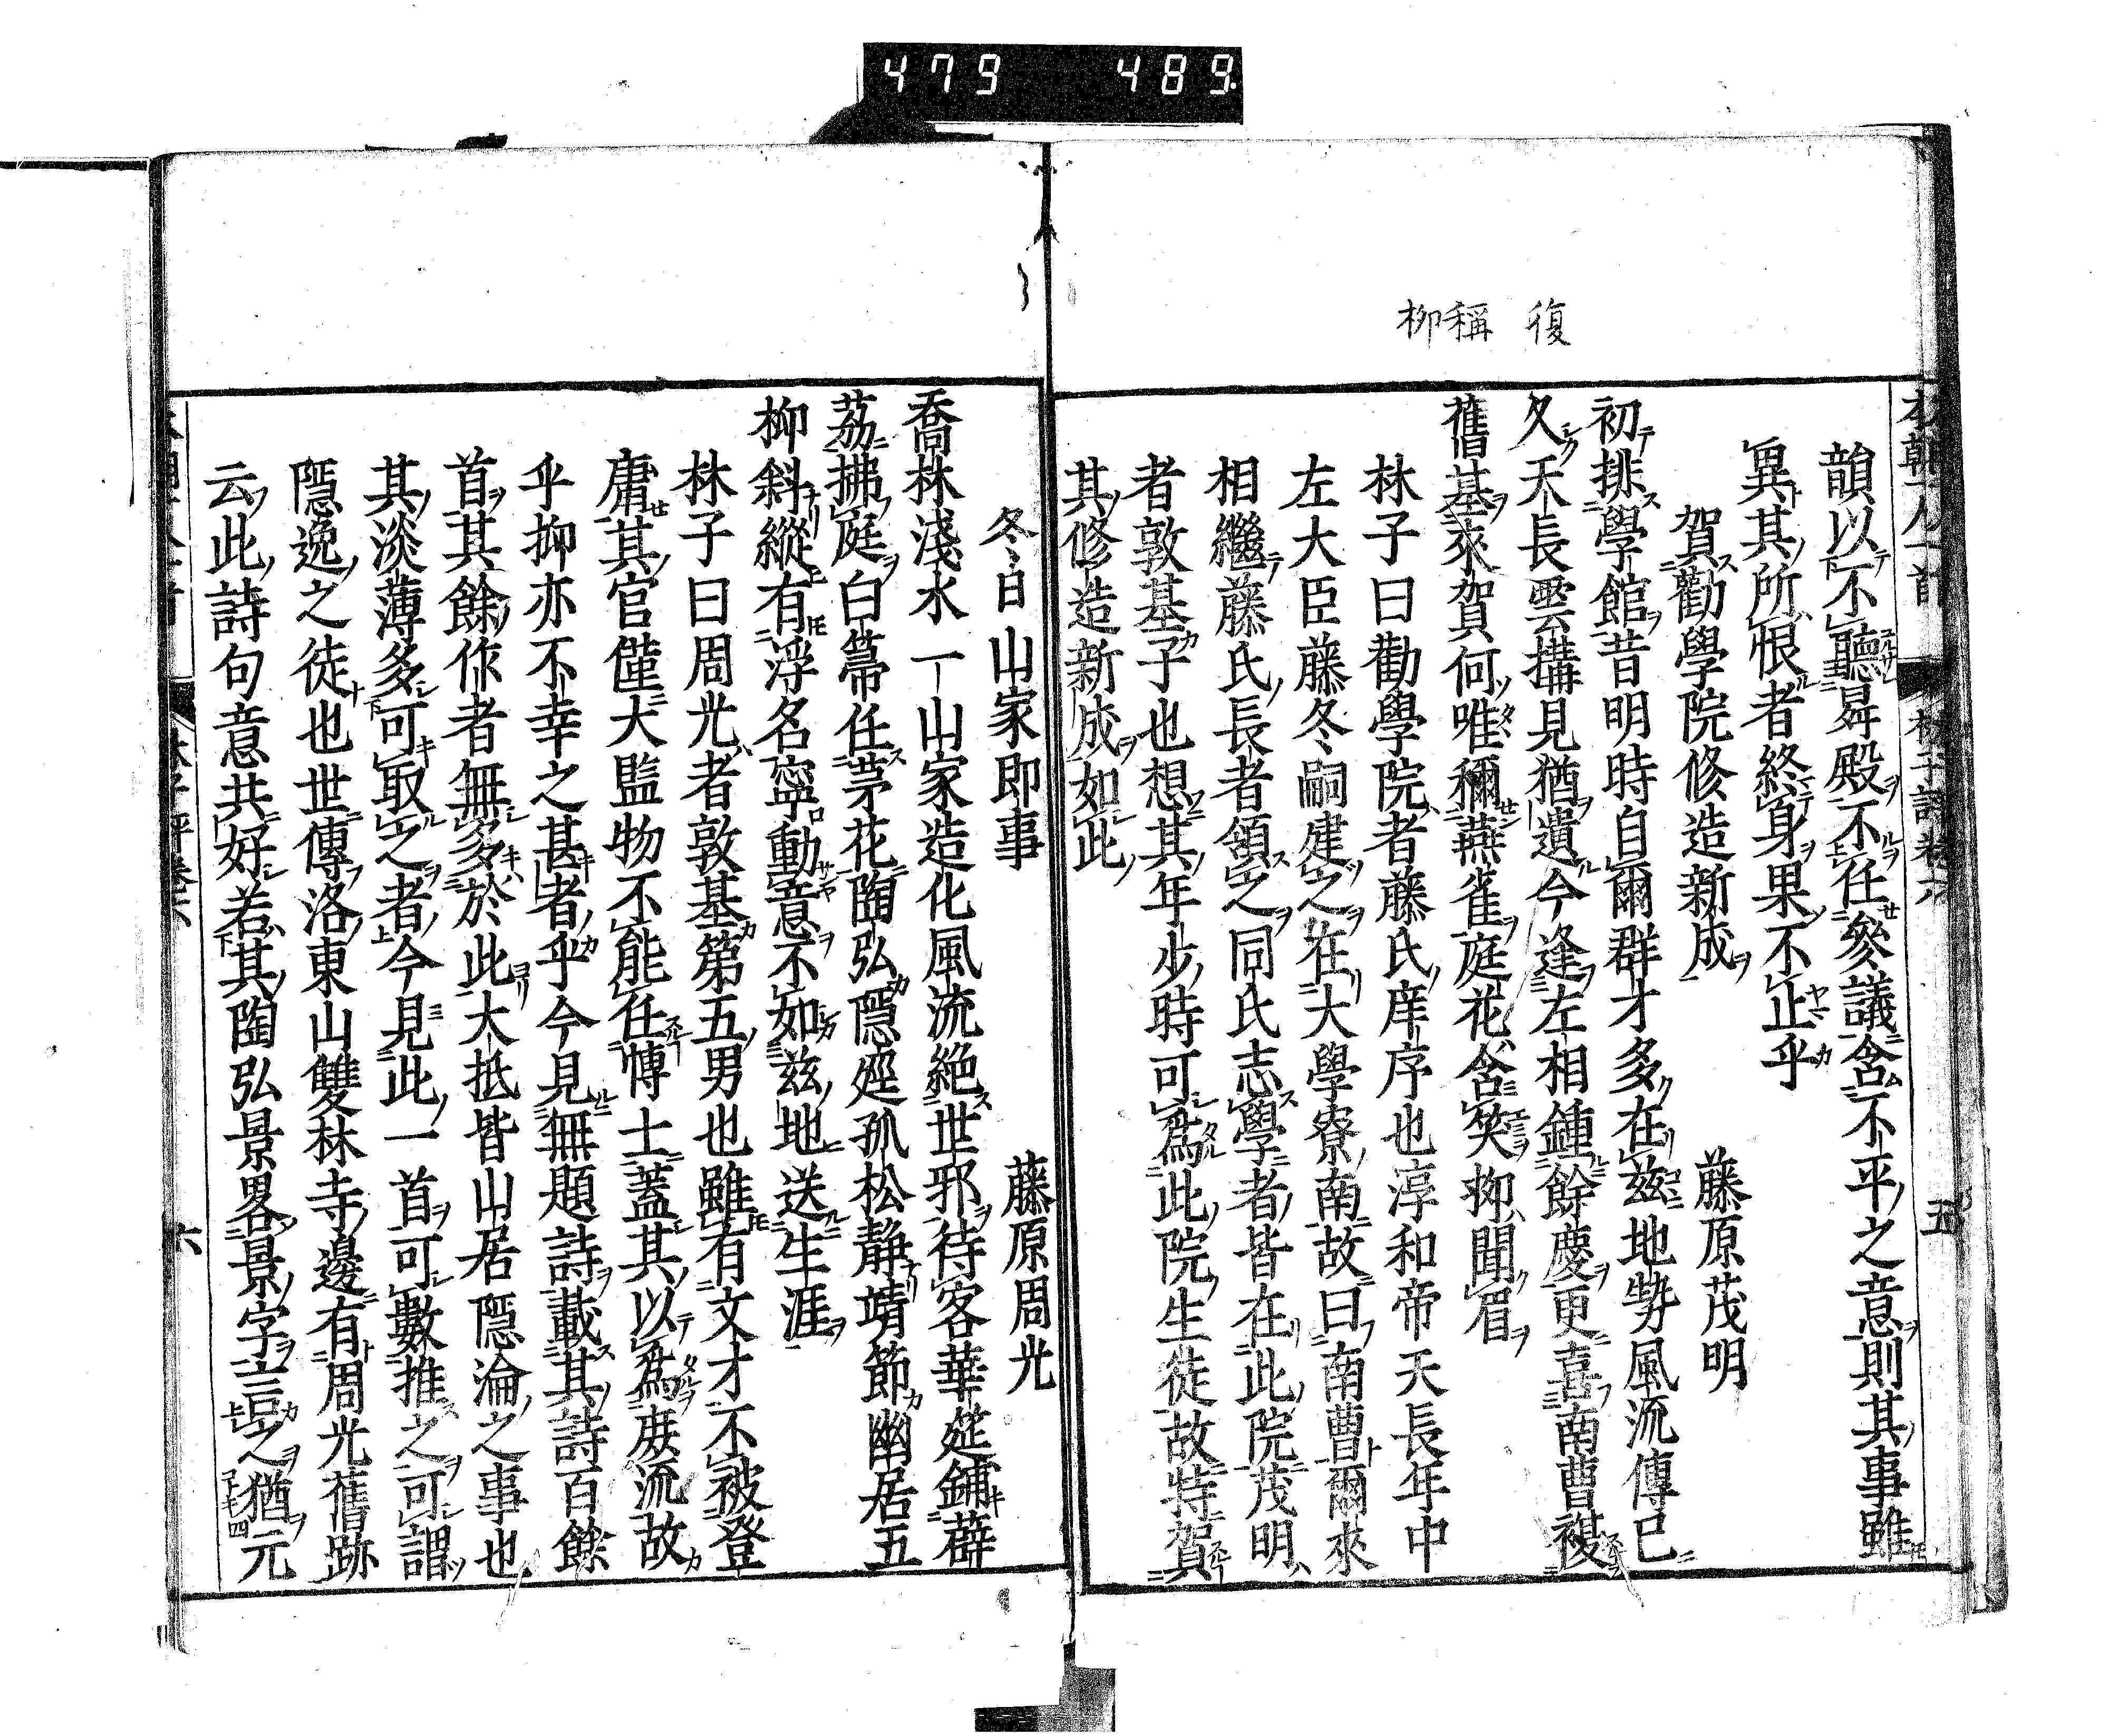 479 489.
復
稱
柳
韻以不聽昇殿不任參議含不平之意則其事雖
異其所恨者終身果不止乎
賀勸學院修造新成
藤原茂明
初排學館昔明時自爾群才多在茲地勢風流傳已
久天長雲搆見猶遺今逢左相鍾餘慶更喜南曹複
舊基來賀何唯稱燕雀庭花含笑抑開眉
林子曰勸學院者藤氏庠序也淳和帝天長年中
左大臣藤冬嗣建之在大學寮南故曰南曹爾來
相繼藤氏長者領之同氏志學者皆在此院茂明
者敦基子也想其年少時可爲此院生徒故特賀
其修造新成如此
五
冬日山家即事
藤原周光
喬林淺水一山家造化風流絶世邪待客華筵鋪薜
荔拂庭白箒任茅花陶弘隱逕孤松靜靖節幽居五
柳斜縱有浮名寧動意不如茲地送生涯
林子曰周光者敦基第五男也雖有文才不被登
庸其官僅大監物不能任博士蓋其以爲庶流故
乎抑亦不幸之甚者乎今見無題詩載其詩百餘
首其餘作者無多於此大抵皆山居隱淪之事也
其淡薄多可取之者今見此一首可數推之可謂
隱逸之徒也世傳洛東山雙林寺邊有周光舊跡
云此詩句意共好若其陶弘景畧景字言之猶元
六